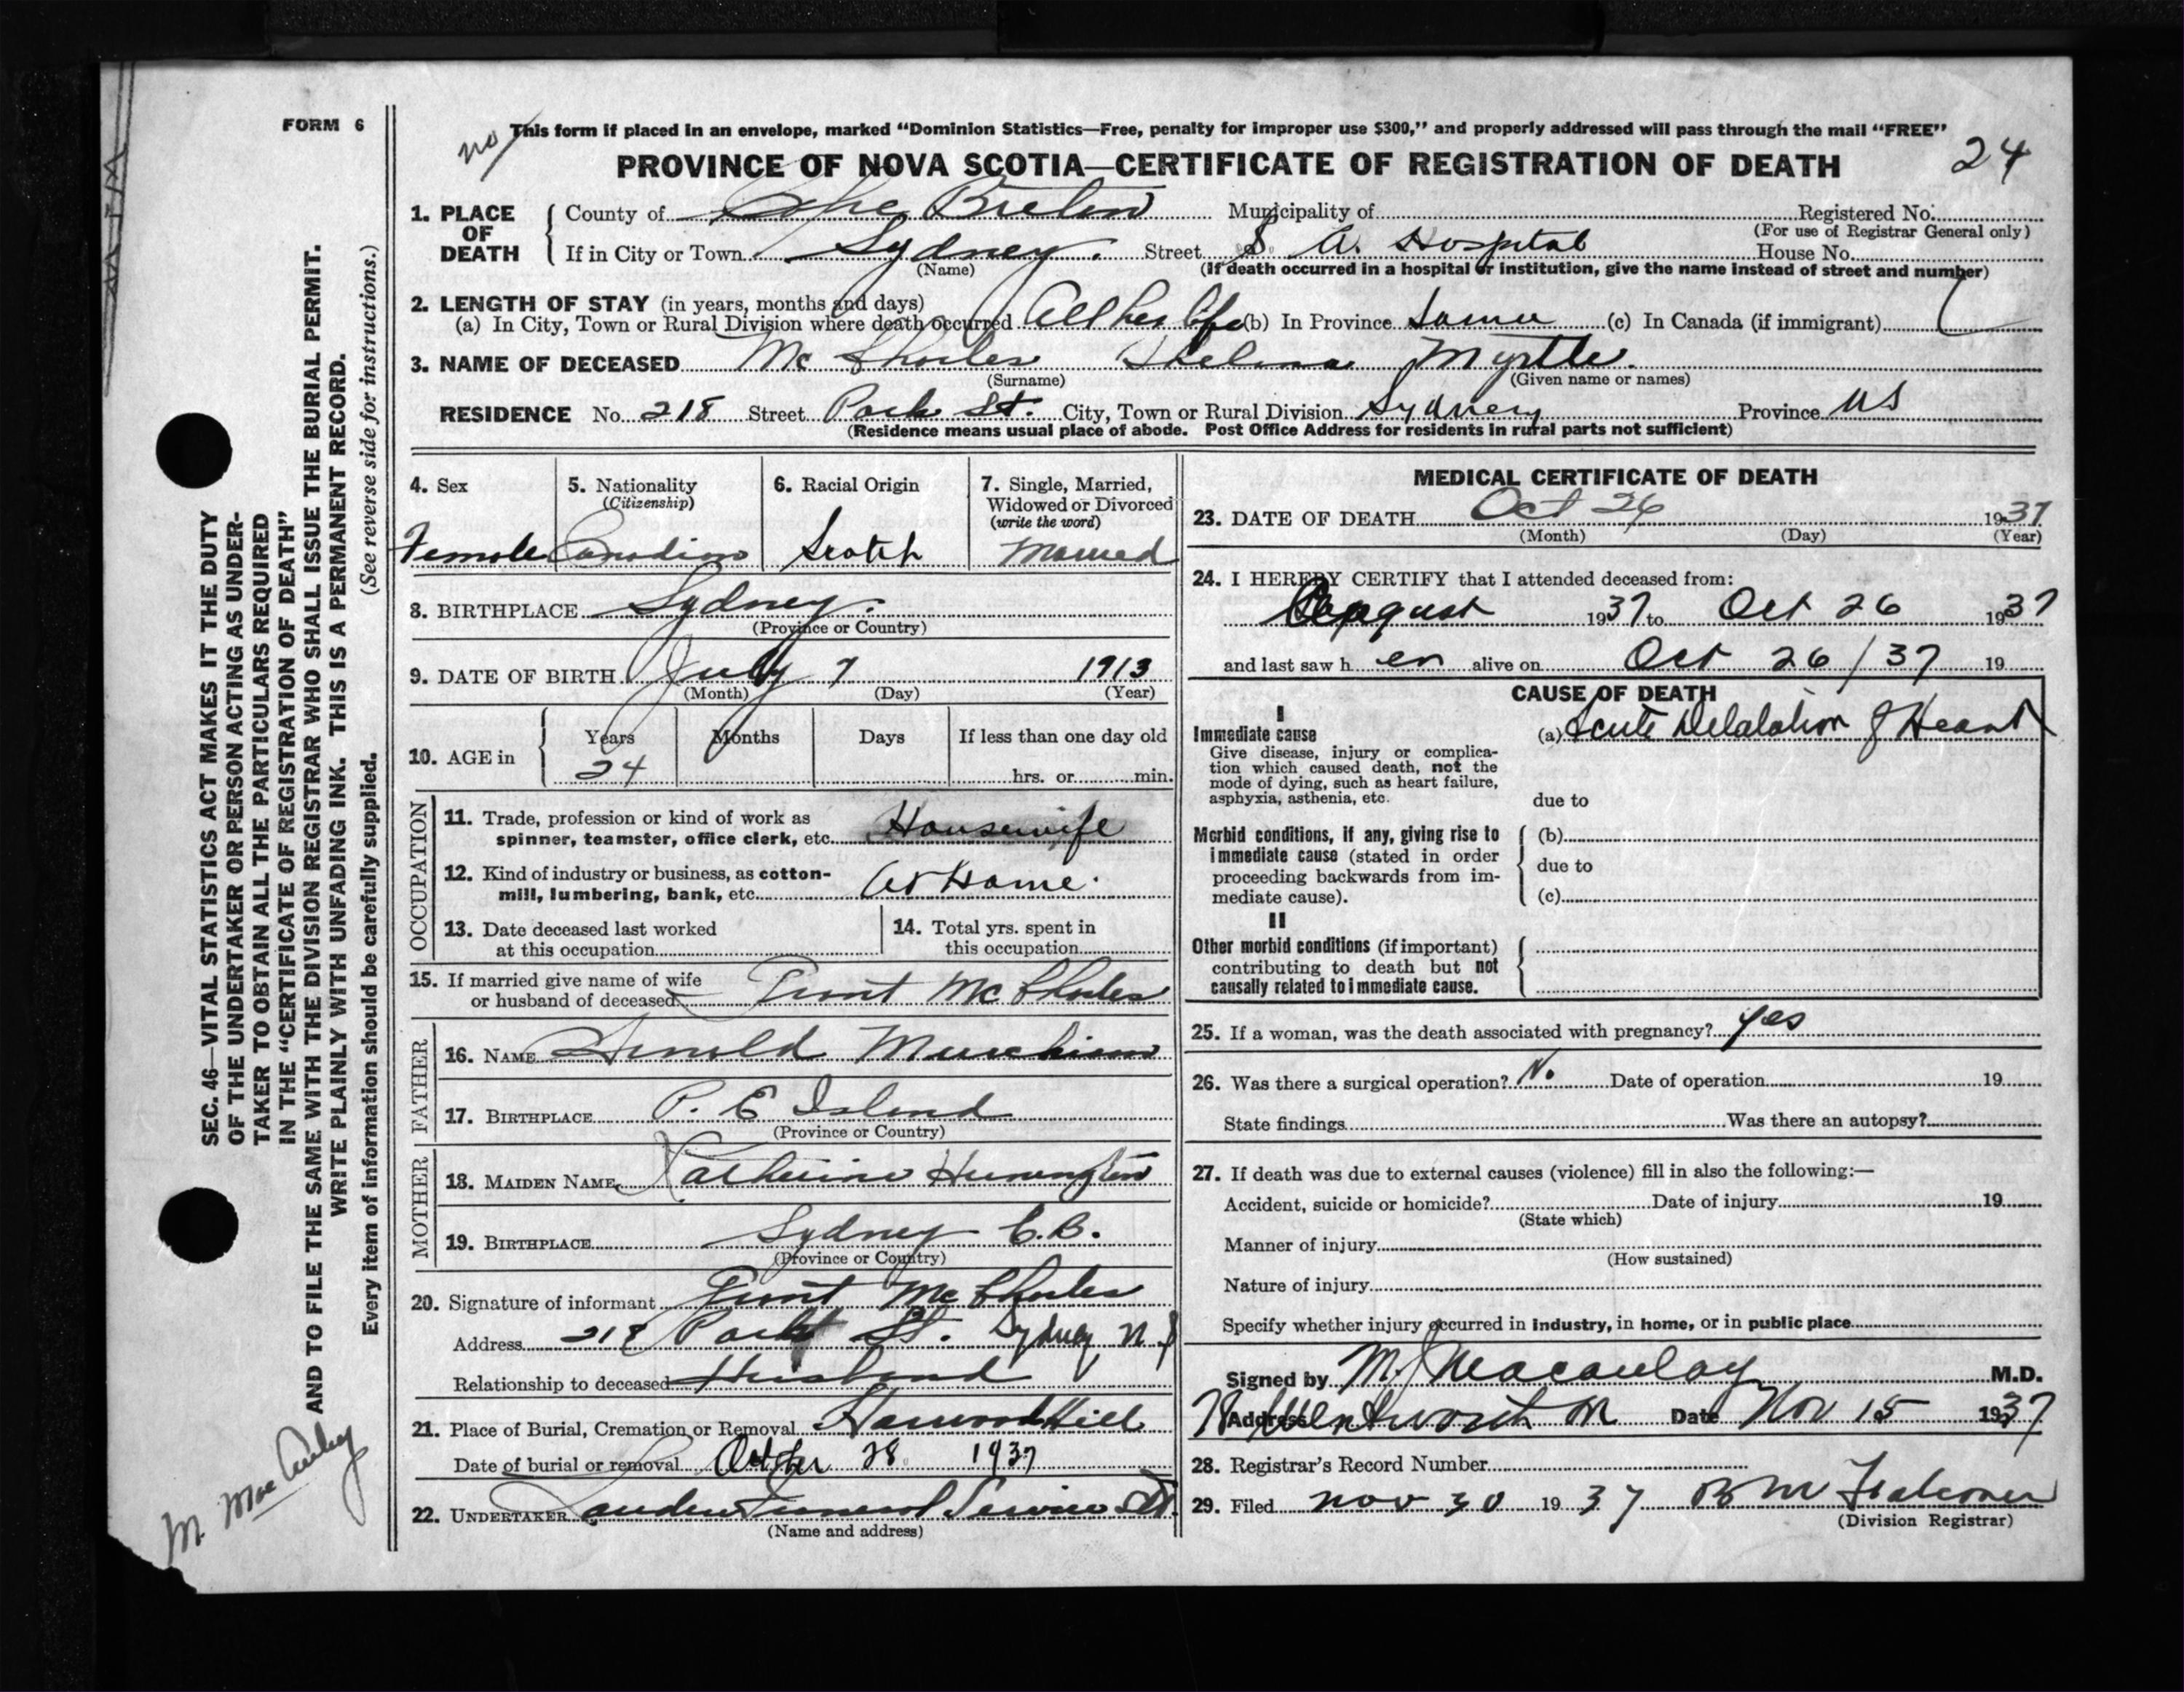 FORM 6
no
This form if placed in an envelope, marked “Dominion Statistics—Free, penalty for improper use $300,” and properly addressed will pass through the mail “FREE”
PROVINCE OF NOVA SCOTIA—CERTIFICATE OF REGISTRATION OF DEATH 24
1. PLACE OF DEATH
County of Cape Breton Municipality of Registered No.
(For use of Registrar General only)
If in City or Town Sydney. Street S. A. Hospital House No.
(Name) (If death occurred in a hospital or institution, give the name instead of street and number)
2. LENGTH OF STAY (in years, months and days)
(a) In City, Town or Rural Division where death occurred All her life (b) In Province Same (c) In Canada (if immigrant)
3. NAME OF DECEASED Thelma Myrtle.
(Surname) (Given name or names)
RESIDENCE No. 218 Street Park St. City, Town or Rural Division Sydney Province NS
(Residence means usual place of abode. Post Office Address for residents in rural parts not sufficient)
4. Sex
Female
5. Nationality
(Citizenship)
Canadian
6. Racial Origin
Scotch
7. Single, Married,
Widowed or Divorced
(write the word)
Married
8. BIRTHPLACE Sydney.
(Province or Country)
9. DATE OF BIRTH July 7 1913
(Month) (Day) (Year)
10. AGE in
Years Months Days If less than one day old
24 hrs. or min.
OCCUPATION
11. Trade, profession or kind of work as
spinner, teamster, office clerk, etc. Housewife
12. Kind of industry or business, as cotton-
mill, lumbering, bank, etc. At Home.
13. Date deceased last worked
at this occupation
14. Total yrs. spent in
this occupation
15. If married give name of wife
or husband of deceased
FATHER
16. NAME Arnold Murchison
17. BIRTHPLACE P. E Island
(Province or Country)
MOTHER
18. MAIDEN NAME Katherine
19. BIRTHPLACE Sydney C.B.
(Province or Country)
20. Signature of informant
Address 218 Park St. Sydney N S
Relationship to deceased Husband
21. Place of Burial, Cremation or Removal Harwood Hill
Date of burial or removal October 28 1937
22. UNDERTAKER Funeral Service
(Name and address)
MEDICAL CERTIFICATE OF DEATH
23. DATE OF DEATH Oct 26 1937
(Month) (Day) (Year)
24. I HEREBY CERTIFY that I attended deceased from:
August 1937 to Oct 26 1937
and last saw h er alive on Oct 26/37 19
CAUSE OF DEATH
I
Immediate cause
Give disease, injury or complica-
tion which caused death, not the
mode of dying, such as heart failure,
asphyxia, asthenia, etc.
(a) Acute Delalation of Heart
due to
Morbid conditions, if any, giving rise to
immediate cause (stated in order
proceeding backwards from im-
mediate cause).
(b)
due to
(c)
II
Other morbid conditions (if important)
contributing to death but not
causally related to immediate cause.
25. If a woman, was the death associated with pregnancy? yes
26. Was there a surgical operation? No Date of operation 19
State findings Was there an autopsy?
27. If death was due to external causes (violence) fill in also the following:—
Accident, suicide or homicide? Date of injury 19
(State which)
Manner of injury
(How sustained)
Nature of injury
Specify whether injury occurred in industry, in home, or in public place
Signed by M. J Macaulay M.D.
Address Wentworth Date Nov 15 1937
28. Registrar's Record Number
29. Filed Nov 30 1937 B M Falconer
(Division Registrar)
SEC. 46—VITAL STATISTICS ACT MAKES IT THE DUTY
OF THE UNDERTAKER OR PERSON ACTING AS UNDER-
TAKER TO OBTAIN ALL THE PARTICULARS REQUIRED
IN THE “CERTIFICATE OF REGISTRATION OF DEATH”
AND TO FILE THE SAME WITH THE DIVISION REGISTRAR WHO SHALL ISSUE THE BURIAL PERMIT.
WRITE PLAINLY WITH UNFADING INK. THIS IS A PERMANENT RECORD.
Every item of information should be carefully supplied. (See reverse side for instructions.)
M. MacAuley